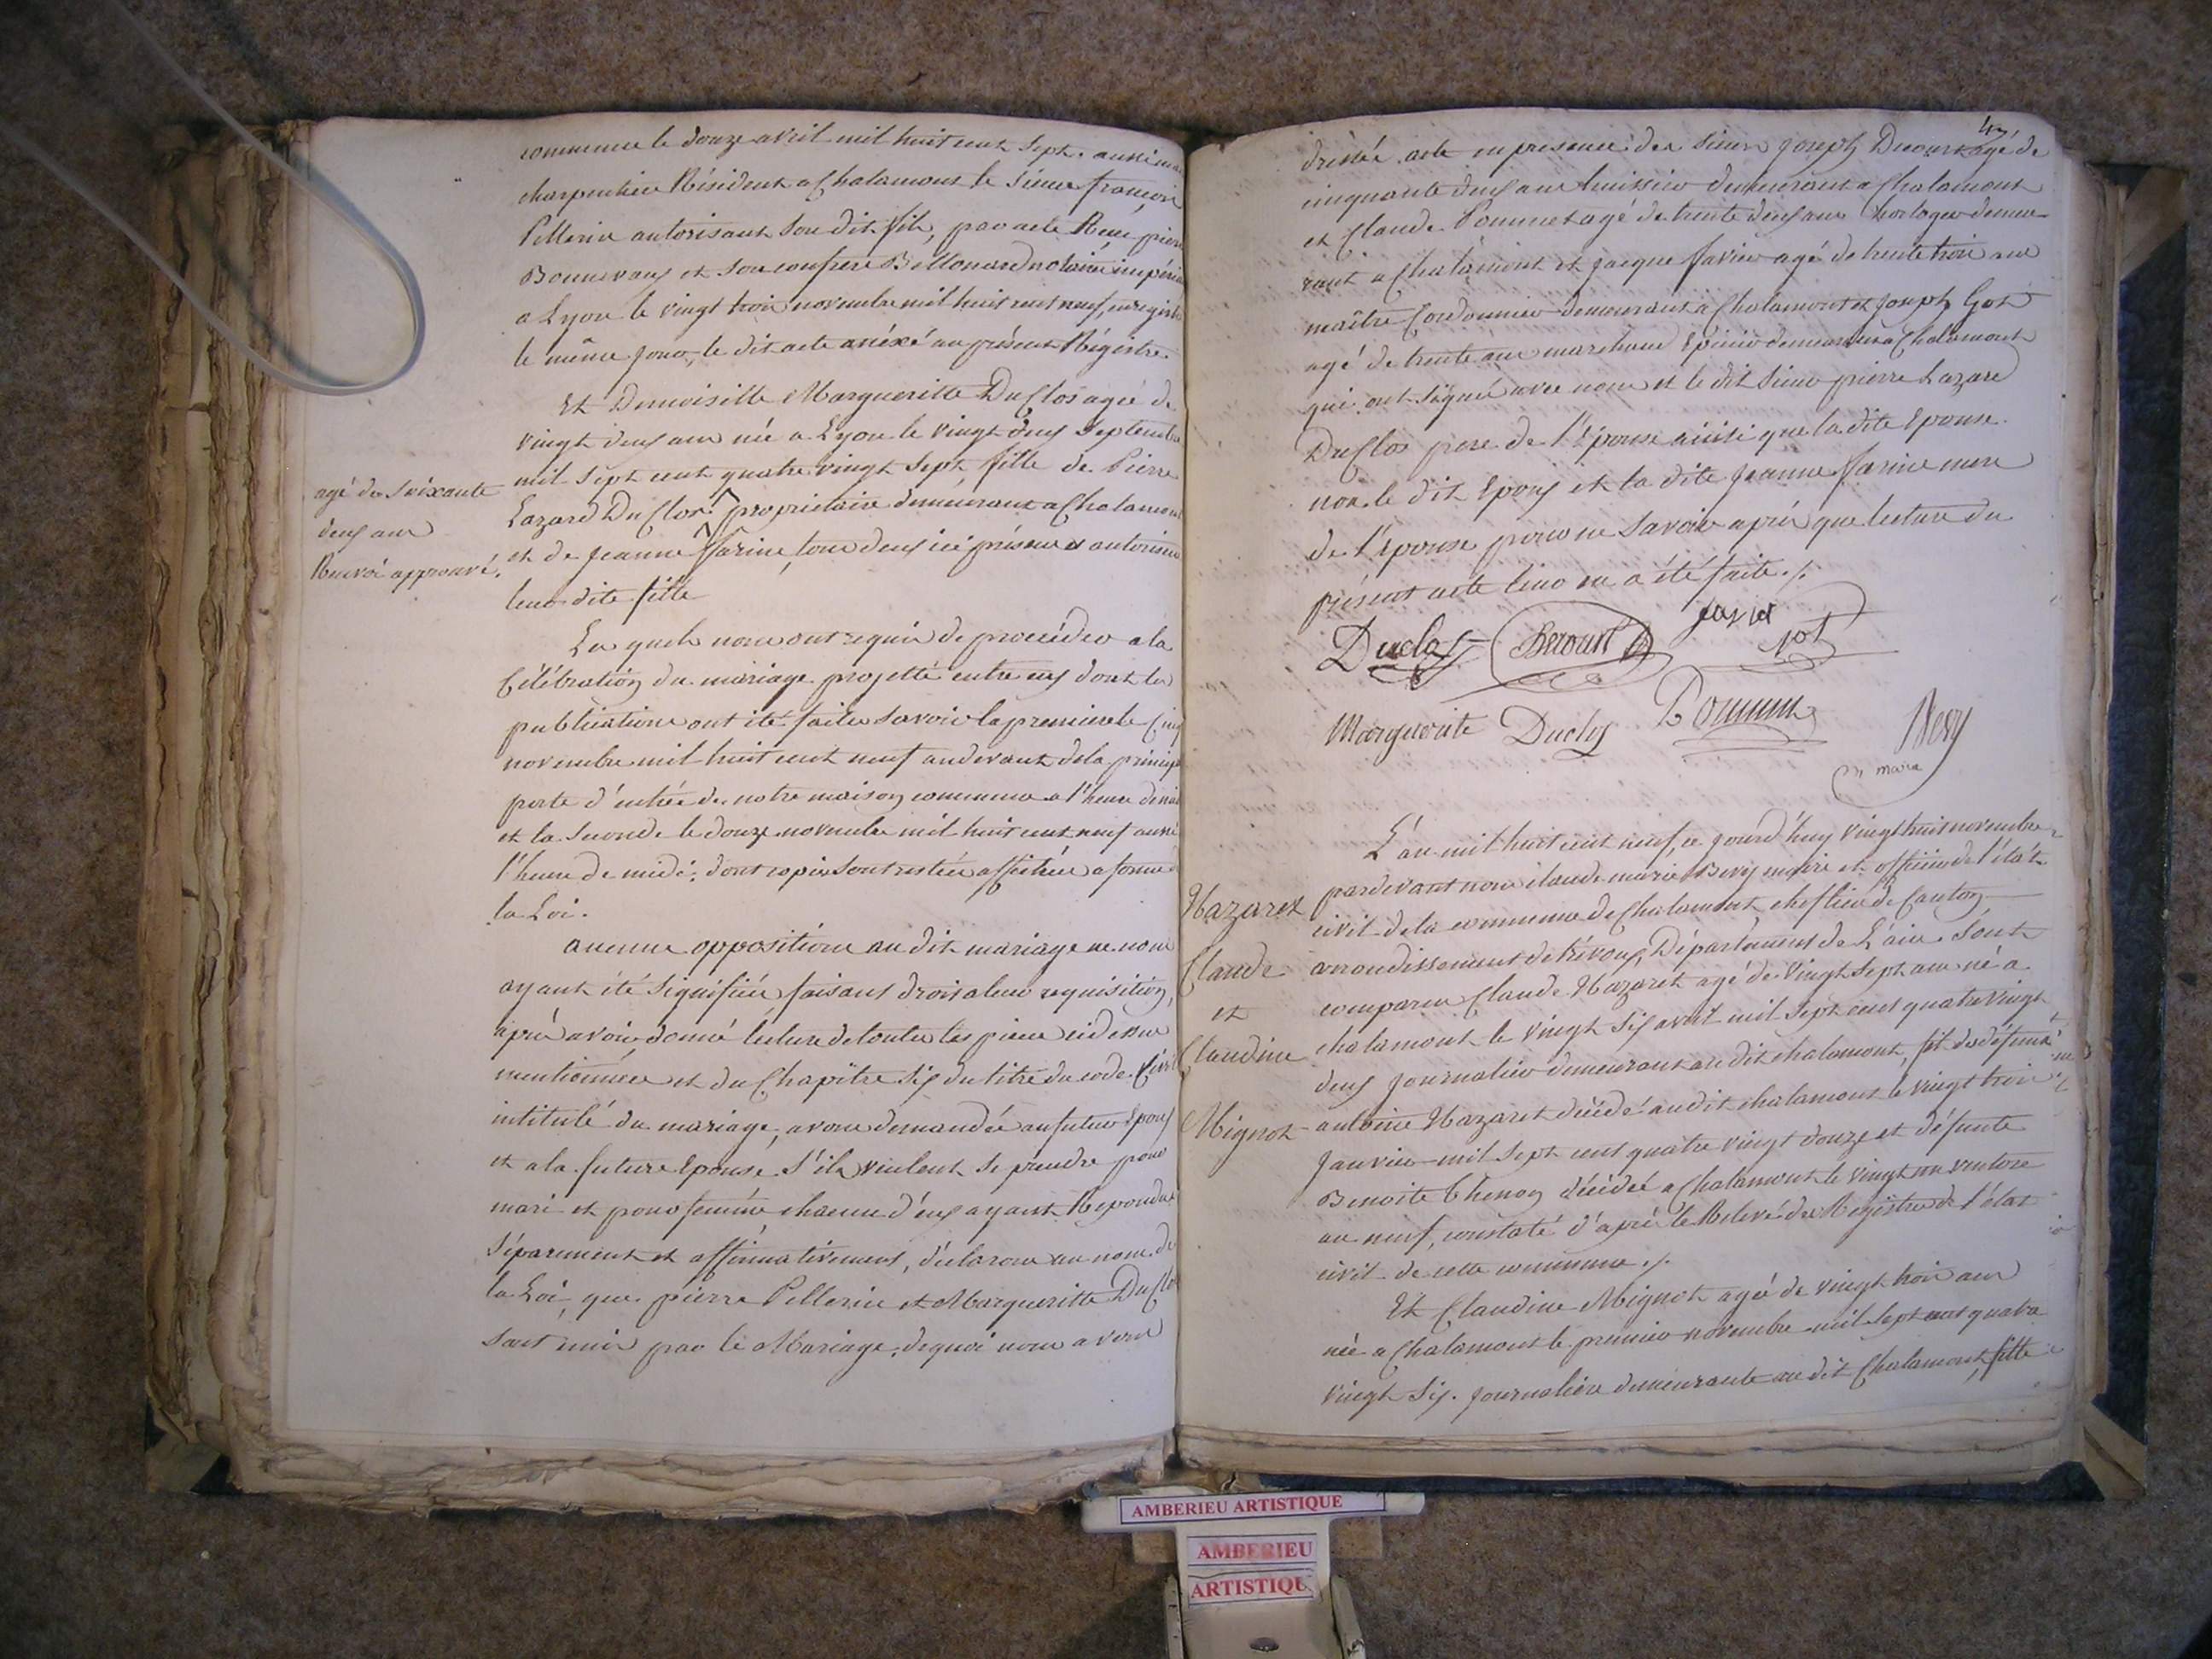 commune le douze avril mil huit cent sept. aussi
charpentier Résident a Chalamont le Sieur françois
Pellerin autorisant Son dit fils, par acte Reçu pierre
Bonnevaux et Son confrere notaire
a Lyon le vingt trois novembre mil huit cent neuf, enregistré
le même jour, le dit acte anéxé au présent Régistre.
Et Demoiselle Margueritte DuClos agée de
vingt deux ans née a Lyon le vingt deux Septembre
mil Sept cent quatre vingt Sept fille de Pierre
agé de Soixante
deux ans
Renvoi approuvé.
Lazard DuClos propriétaire demeurant a Chalamont
et de Jeanne farine, tous deux ici présens et autorisant
leur dite fille
Les quels nous ont requis de procéder a la
Célébration du mariage projetté entre eux dont les
publications ont été faites Savoir la premiere le Cinq
novembre mil huit cent neuf au devant de la
porte d'entrée de notre maison commune a l'heure de midi
et la Seconde le douze novembre mil huit cent neuf aussi
l'heure de midi; dont copies Sont restées affichées a forme de
la Loi.
aucune oppositions au dit mariage ne nous
ayant été Signifiées faisant droit a leur requisition,
après avoir donné lecture de toutes les pièces ci dessus
mentionnées et du Chapitre Six du titre du code Civil
intitulé du mariage, avons demandé au futur Epoux
et a la future Epouse S'ils veulent Se prendre pour
mari et pour femme chacun d'eux ayant Repondus
Séparement et affirmativement, déclarons au nom de
la Loi, que pierre Pellerin et Margueritte DuClos
Sont unis par le Mariage, de quoi nous avons
dressée acte en presence des Sieurs Joseph Decourt agé de
cinquante deux ans huissier demeurant a Chalamont
et Claude Pommet agé de trente deux ans horloger demeu-
rant a Chalamont et Jacque favier agé de trente trois ans
maître Cordonnier demeurant a Chalamont et Joseph Got
agé de trente ans marchand Epicier demeurant a Chalamont
qui ont Signé avec nous et le dit Sieur pierre Lazare
DuClos pere de l'épouse ainsi que la dite Epouse.
non le dit Epoux et la dite Jeanne farine mere
de l'Epouse pour ne Savoir après que lecture du
présent acte leur en a été faite./.
Duclos
favier
got
Marguerite Duclos
maire
L'an mil huit cent neuf, ce jourd'huy vingt huit novembre
pardevant nous claude marie Bevy maire et officier de l'état
civil de la commune de Chalamont, cheflieu de Canton
arrondissement de trévoux, Département de L'ain. Sont
comparu Claude Nazaret agé de vingt Sept ans né a
chalamont le vingt Six avril mil Sept cent quatre vingt
deux Journalier demeurant au dit chalamont, fils de défunt
antoine Nazaret décédé au dit chalamont le vingt trois
Janvier mil Sept cent quatre vingt douze et défunte
Benoite thenon décédée a Chalamont le vingt un ventose
an neuf, constaté d'après le Relevé des Régistres de l'état
civil de cette commune./.
Et Claudine Mignot agée de vingt trois ans
née a Chalamont le premier novembre mil Sept cent quatre
vingt Six. Journaliere demeurante au dit Chalamont, fille
Nazaret
Claude
et
Claudine
Mignot
AMBERIEU ARTISTIQUE
AMBERIEU
ARTISTIQUE